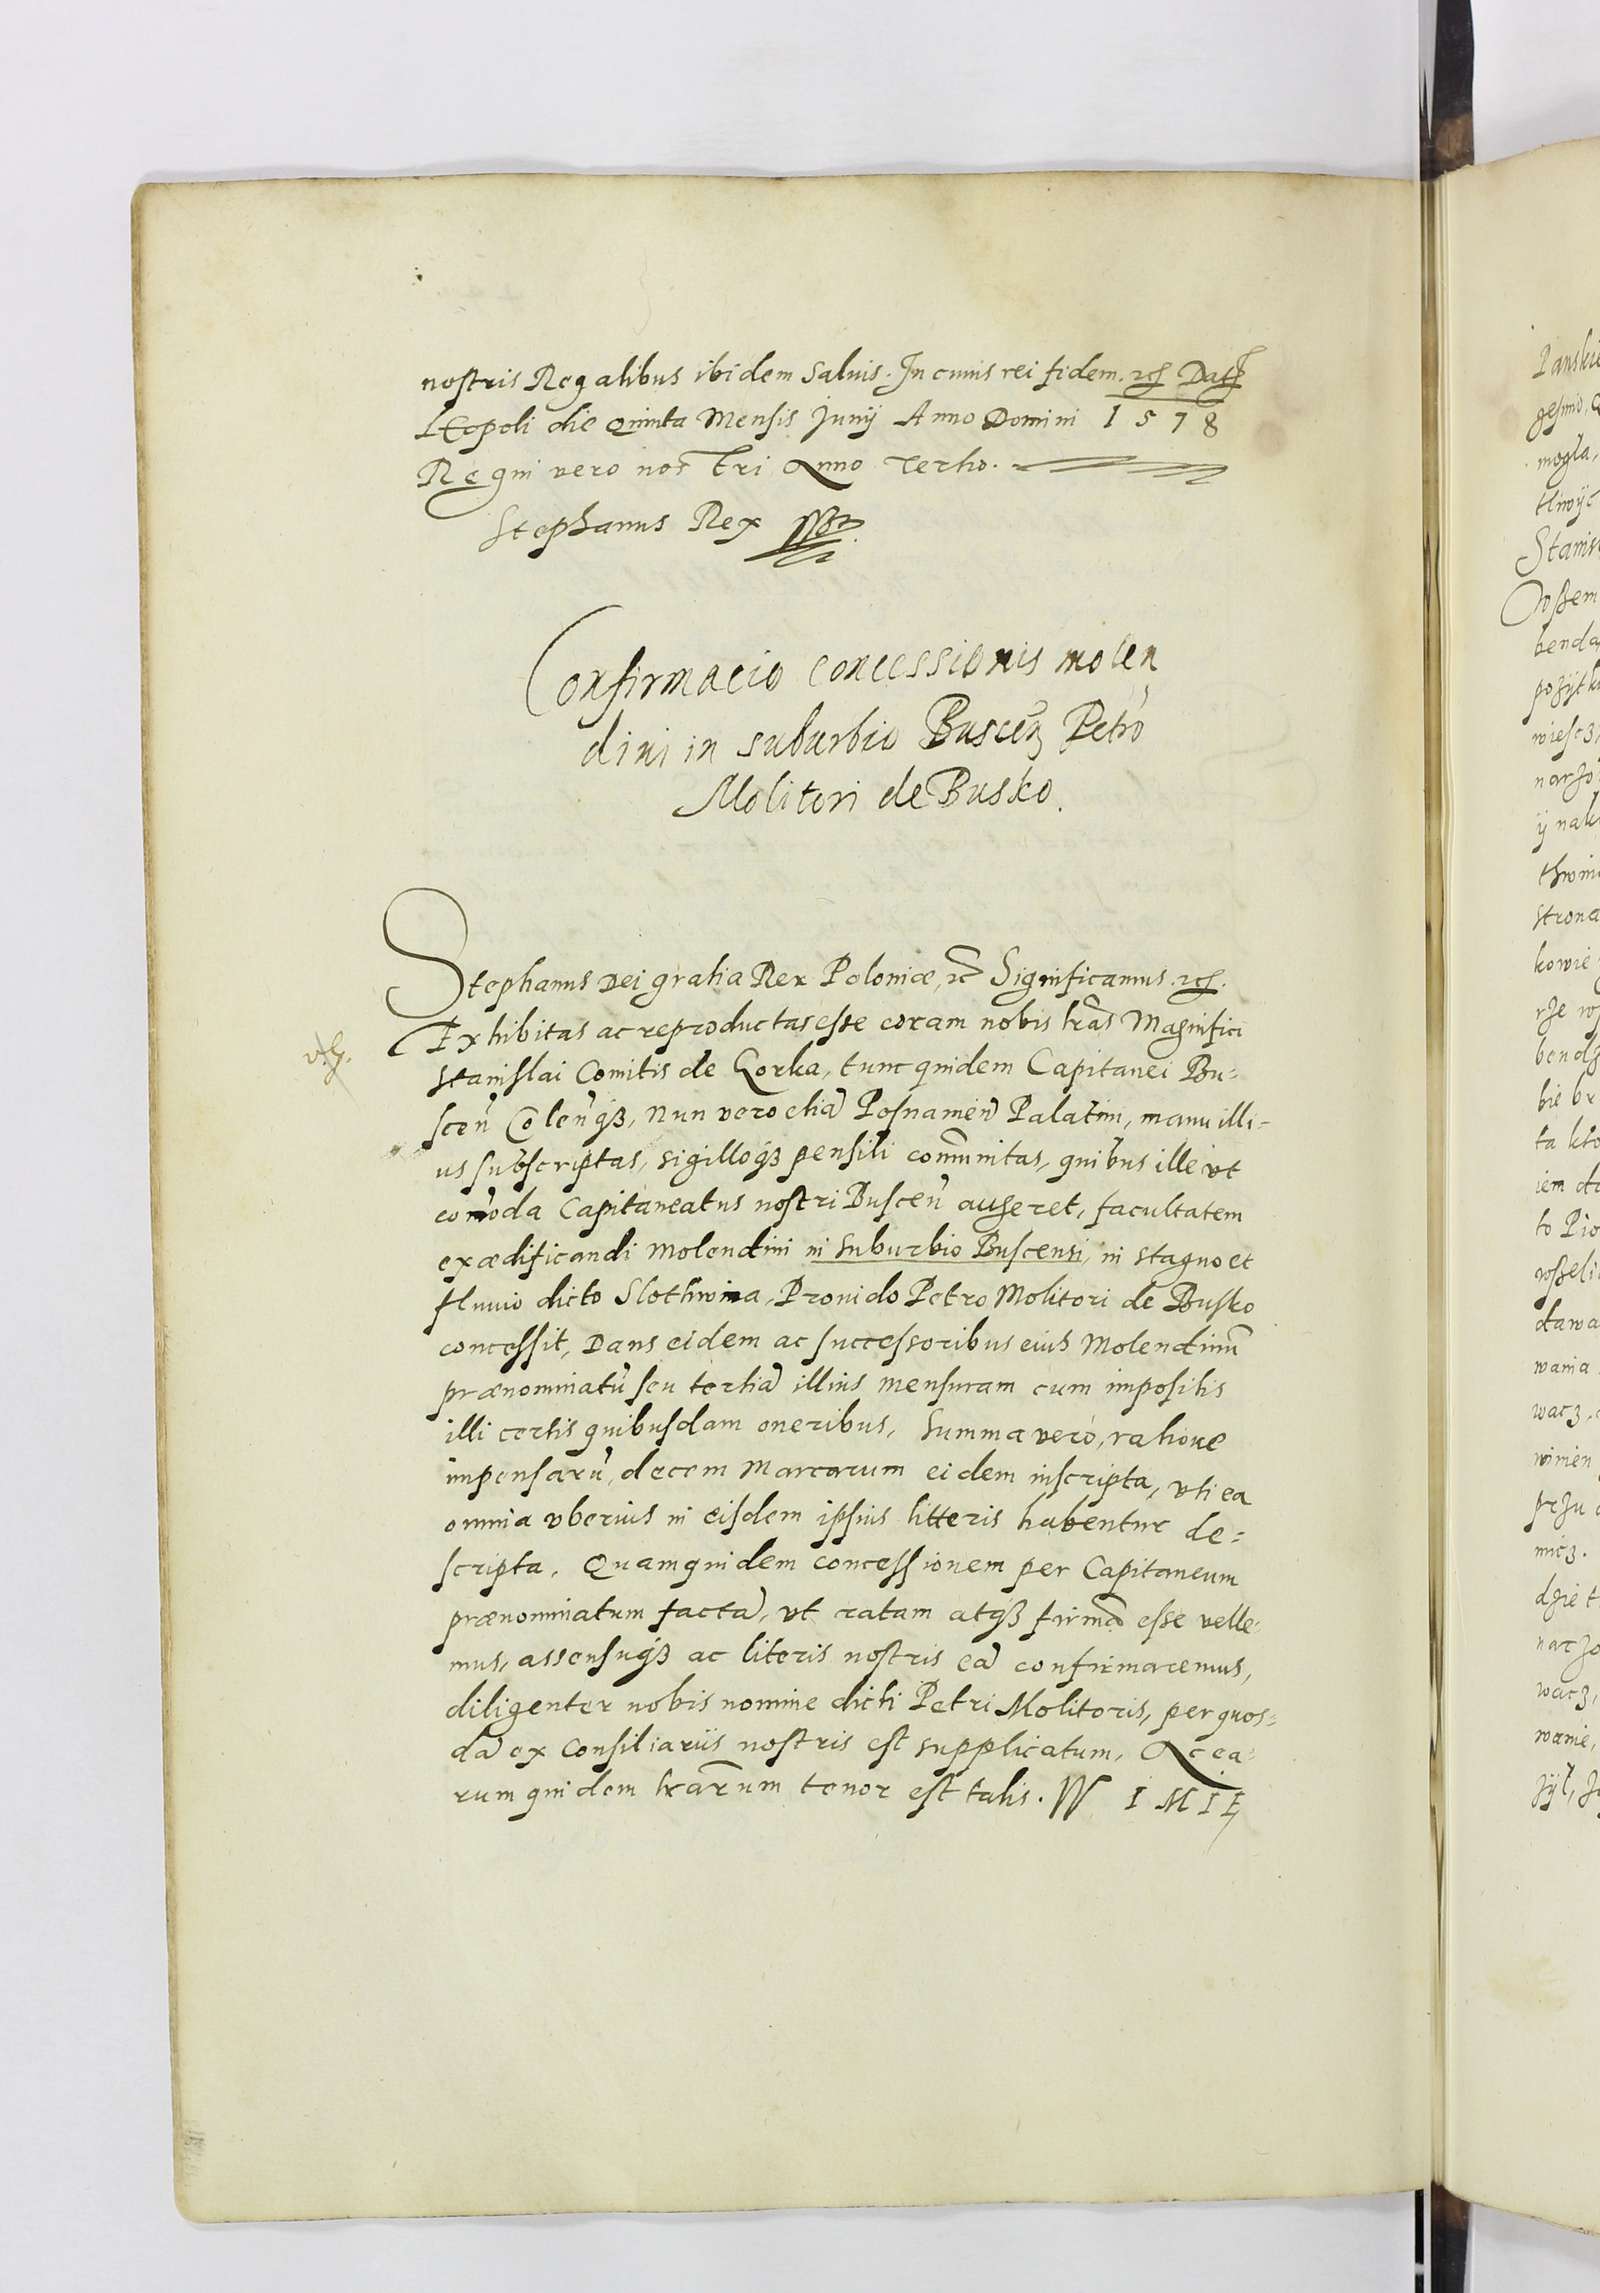 nostris Regalibus ibidem Saluis. In cuius rei fidem. Dat
LEopoli die Quinta Mensis Junij Anno Domini 1578
Regni vero nostri Anno Tertio.
Stephanus Rex
Confirmacio concessionis molen
dini in suburbio Buscen̄ Petro
Molitori de Busko.
Stephanus Dei gratia Rex Poloniæ, Significamus.
Exhibitas ac reproductas esse coram nobis lr̃as Magnifici
Stanislai Comitis de Gorka, tunc quidem Capitanei Bu-
scen̄ Colen̄q̃, Nun vero etiā Posnanien̄ Palatini, manu illi-
us subscriptas, sigilloq̃ pensili com̃unitas, quibus ille vt
com̃oda Capitaneatus nostri Buscen̄ augeret, facultatem
exædificandi Molendini in Suburbio Buscensi, in stagno et
fluuio dicto Slothwina, Prouido Petro Molitori de Busko
concessit, Dans eidem ac successoribus eius Molendinū
prænominatū seu tertiā illius mensuram cum impositis
illi certis quibusdam oneribus, Summa vero, ratione
impensarū, decem Marcarum eidem inscripta, vti ea
omnia vberius in eisdem ipsius litteris habentur de-
scripta. Quamquidem concessionem per Capitaneum
prænominatum factā, vt ratam atq̃ firmā esse velle-
mus, assensuq̃ ac literis nostris eā confirmaremus,
diligenter nobis nomine dicti Petri Molitoris, per quos-
dā ex Consiliariis nostris est supplicatum, Ac ea-
rum quidem lr̃arum tenor est talis. W IMIE
Panskie
mogla,
bendą
strona
kowie
ta kto
iem
to Pio
dawa
wania
wacz,
winien
przu
nicz.
wacz,
wanie,